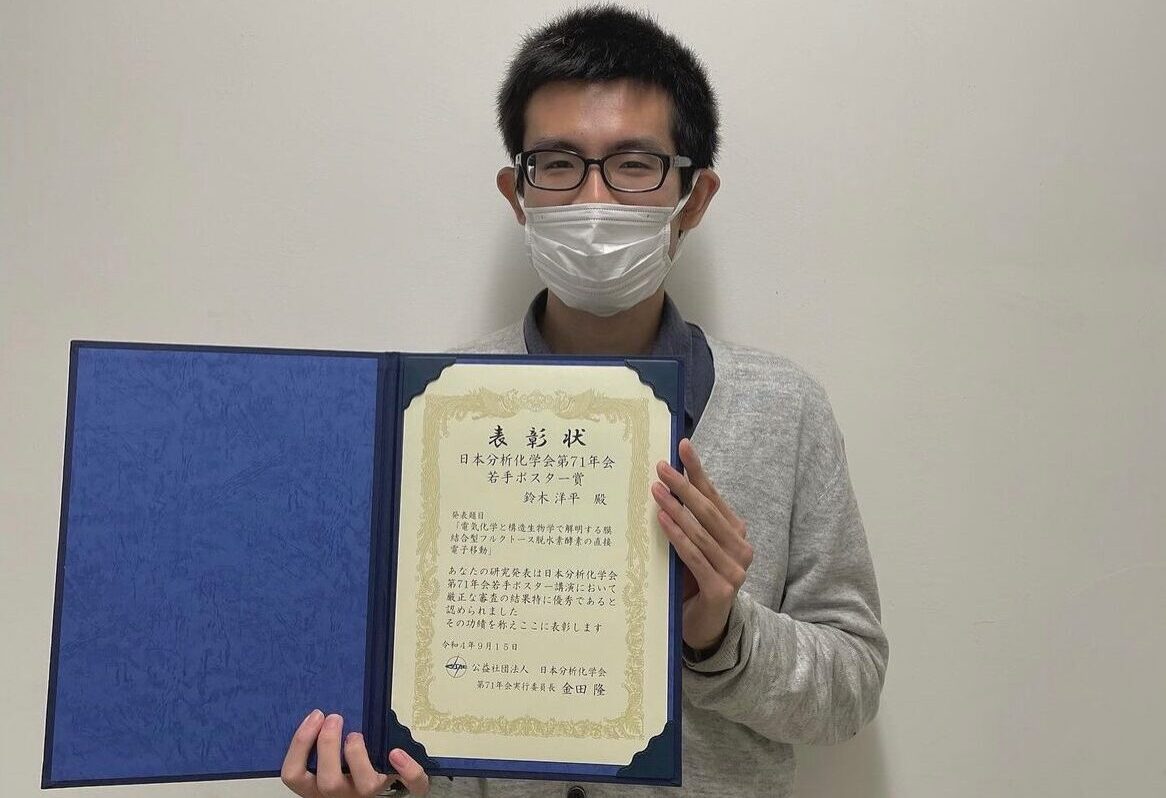 表彰状
日本分析化学会第71年会
若手ポスター賞
鈴木 洋平 殿
発表題目
「電気化学と構造生物学で解明する膜
結合型フルクトース脱水素酵素の直接
電子移動」
あなたの研究発表は日本分析化学会
第71年会若手ポスター講演において
厳正な審査の結果特に優秀であると
認められました
その功績を称えここに表彰します
令和4年9月15日
公益社団法人 日本分析化学会
第71年会実行委員長 金田 隆